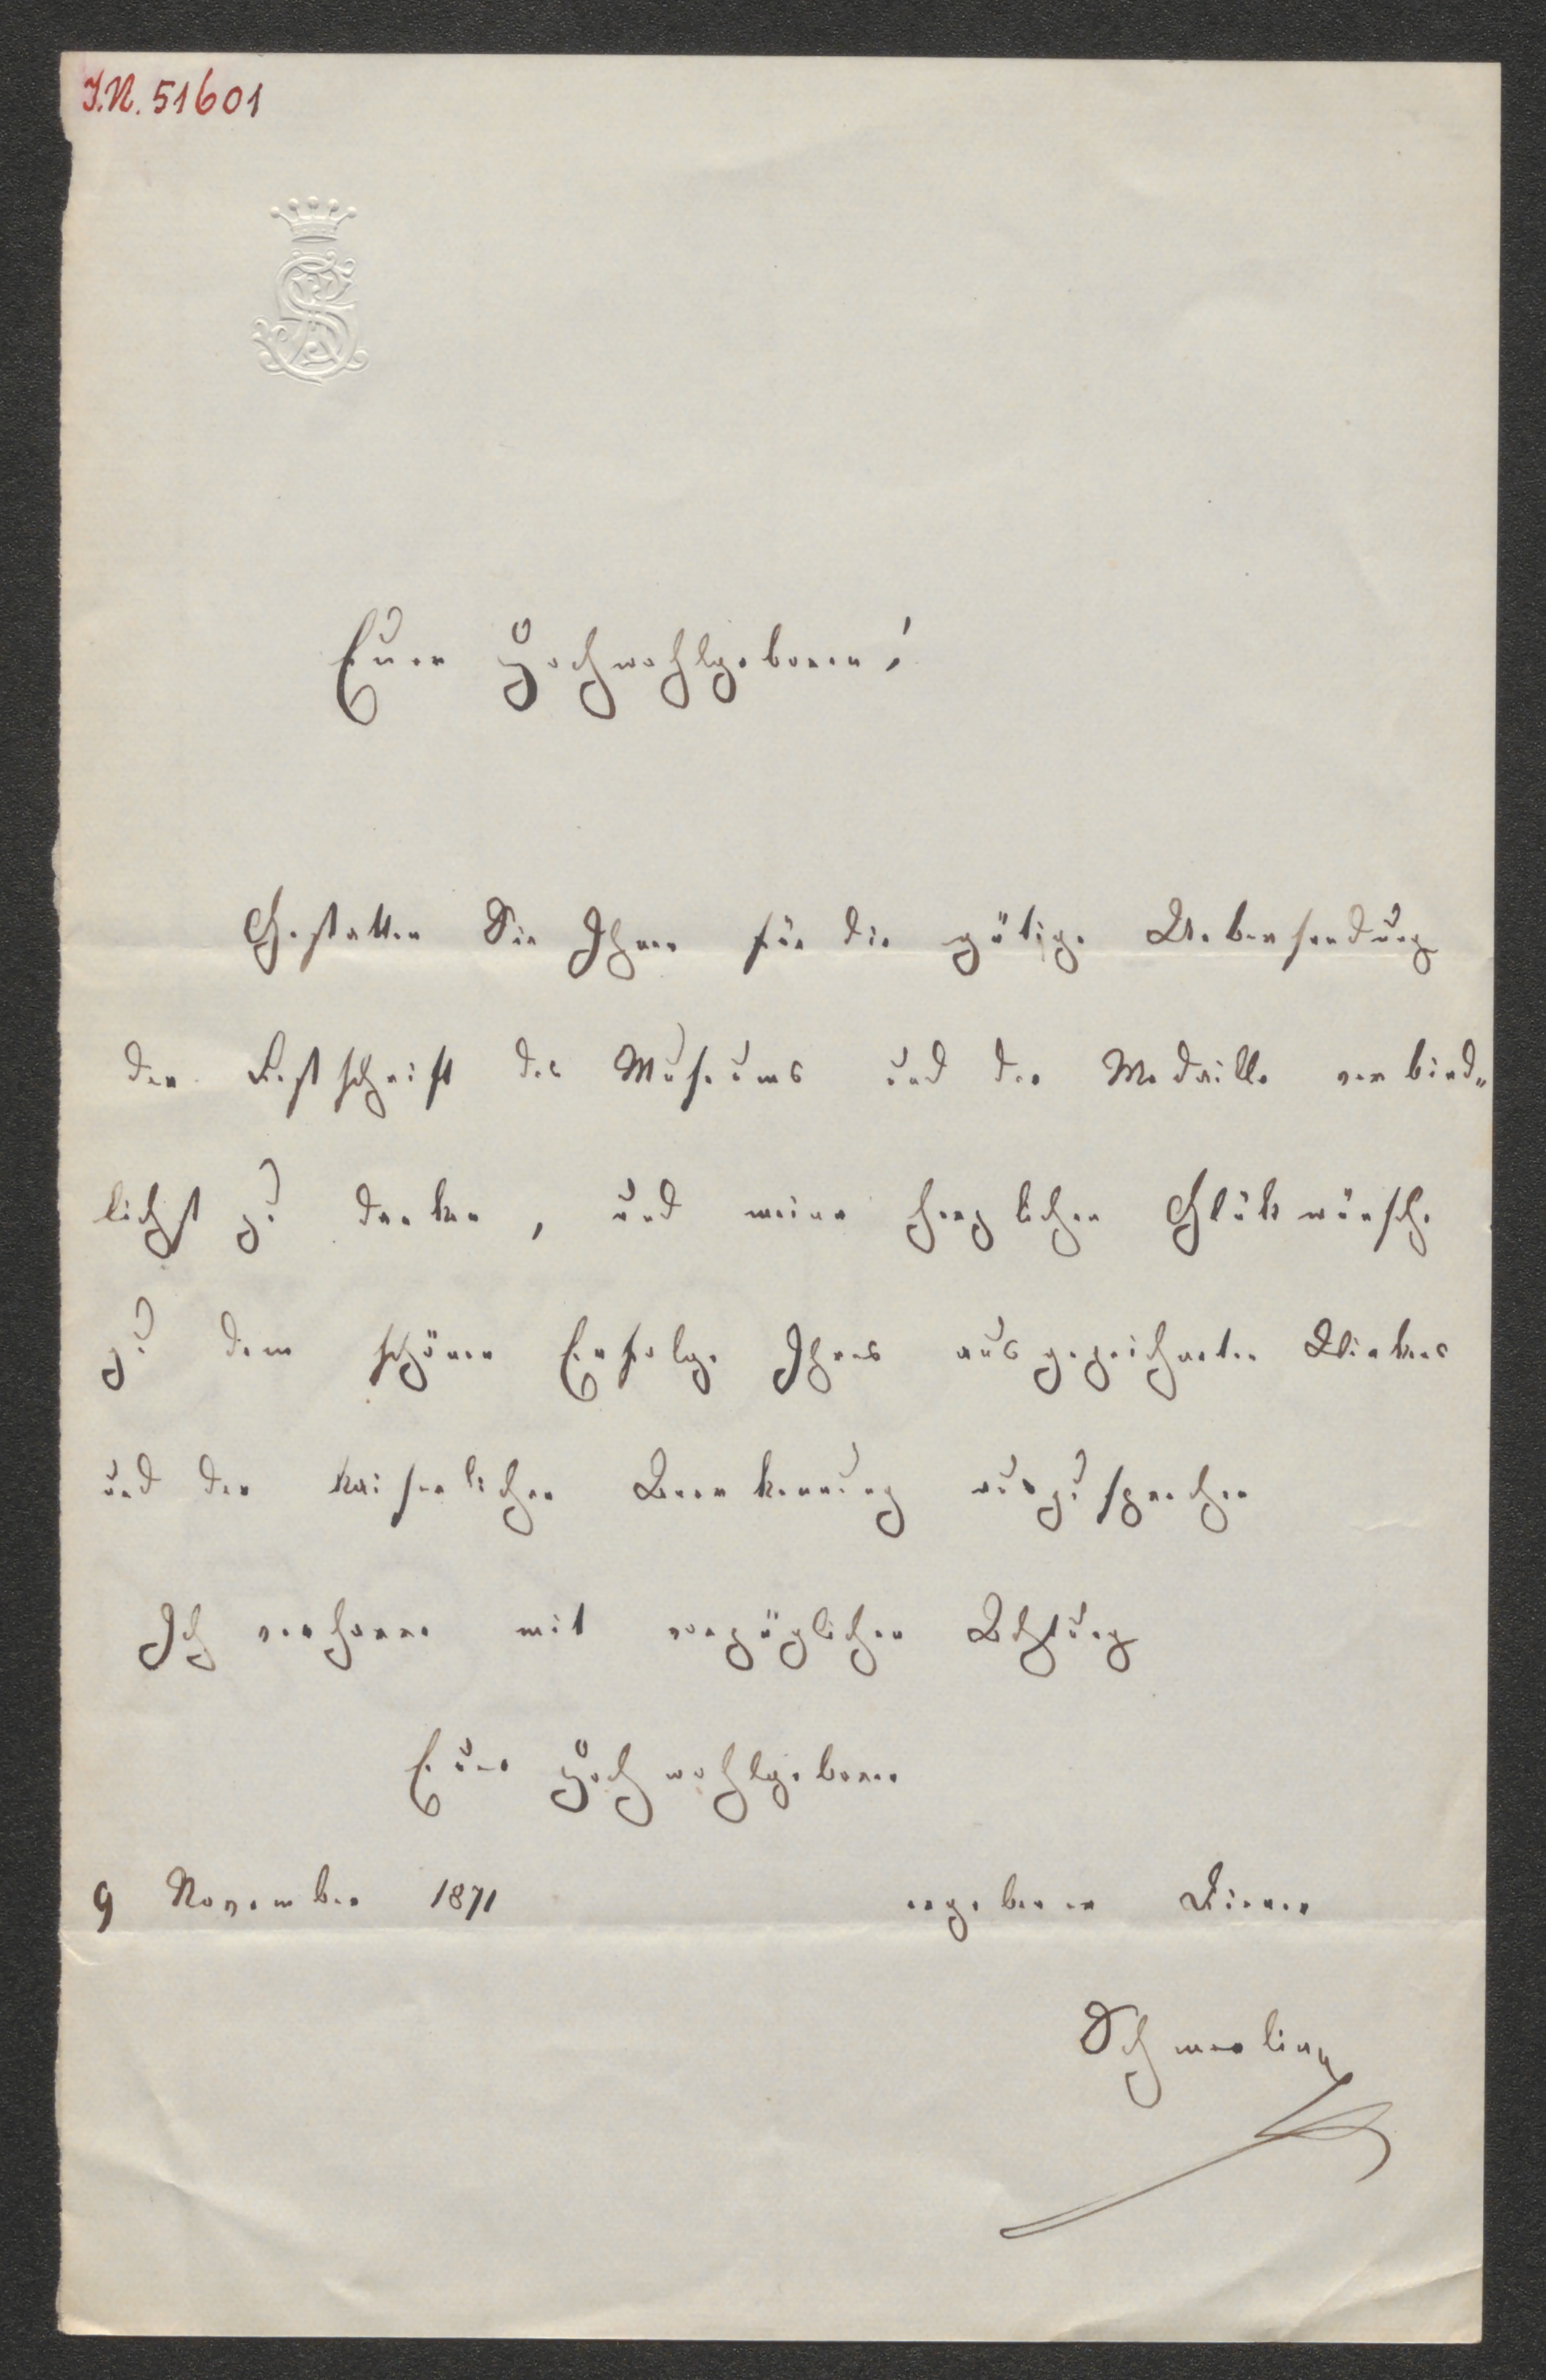 I.N. 51601
Euer Hochwohlgeboren!
Gestatten Sie Ihnen für die gütige Uebersendung
der Festschrift des Museums und der Medaille verbind„
lichst zu danken, und meine herzlichen Glükwünsche
zu dem schönen Erfolge Ihres ausgezeichneten Wirkens
und der kaiserlichen Anerkennung auszusprechen
Ich verharre mit vorzüglicher Achtung
Euer Hochwohlgeboren
9 November 1871 ergebener Diener
Schmerling